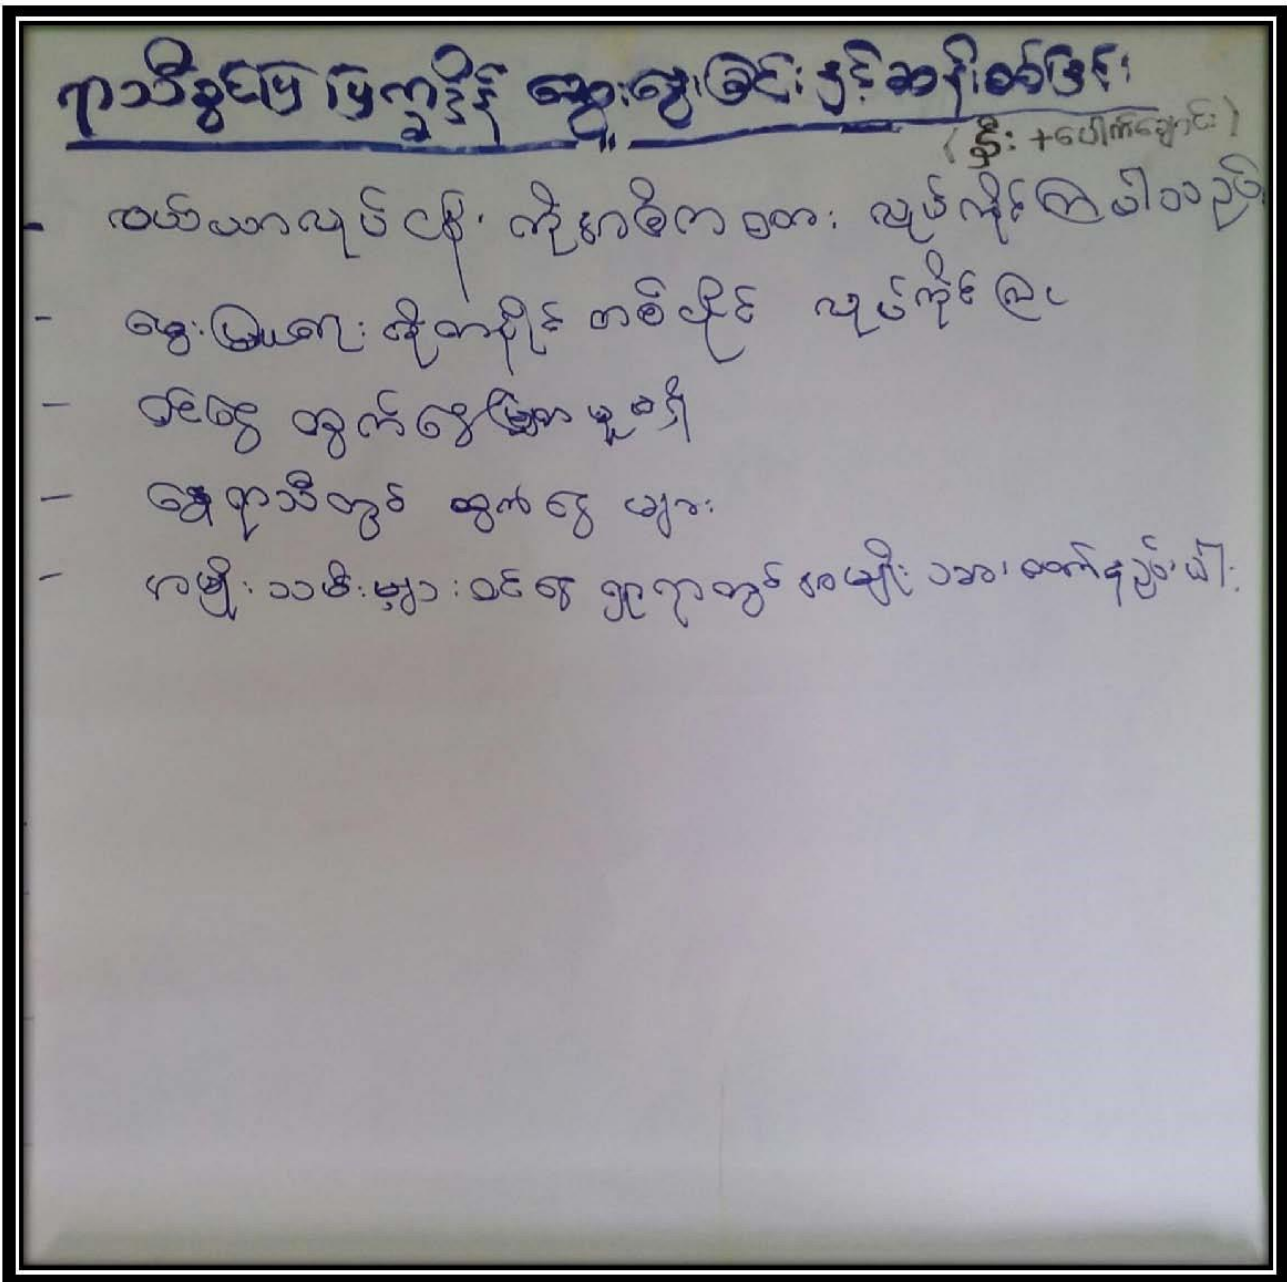 ရာသီခွင်ပြ ပြက္ခဒိန် ဆွေးနွေးခြင်းနှင့်ဆန်းစစ်ခြင်း
(နှီး + ပေါက်ချောင်း)
- လယ်ယာလုပ်ငန်း ကိုအဓိကထား လုပ်ကိုင်ကြပါသည်
- မွေးမြူရေး ကိုတနိုင် တစ်ပိုင် လုပ်ကိုင်ကြ
- ဝင်ငွေ ထွက်ငွေမျှတ မှု မရှိ
- နွေရာသီတွင် ထွက်ငွေ များ
- အမျိုးသမီးများ ဝင်ငွေ ရှာရာတွင် အမျိုးသား ထက်နည်းပါး